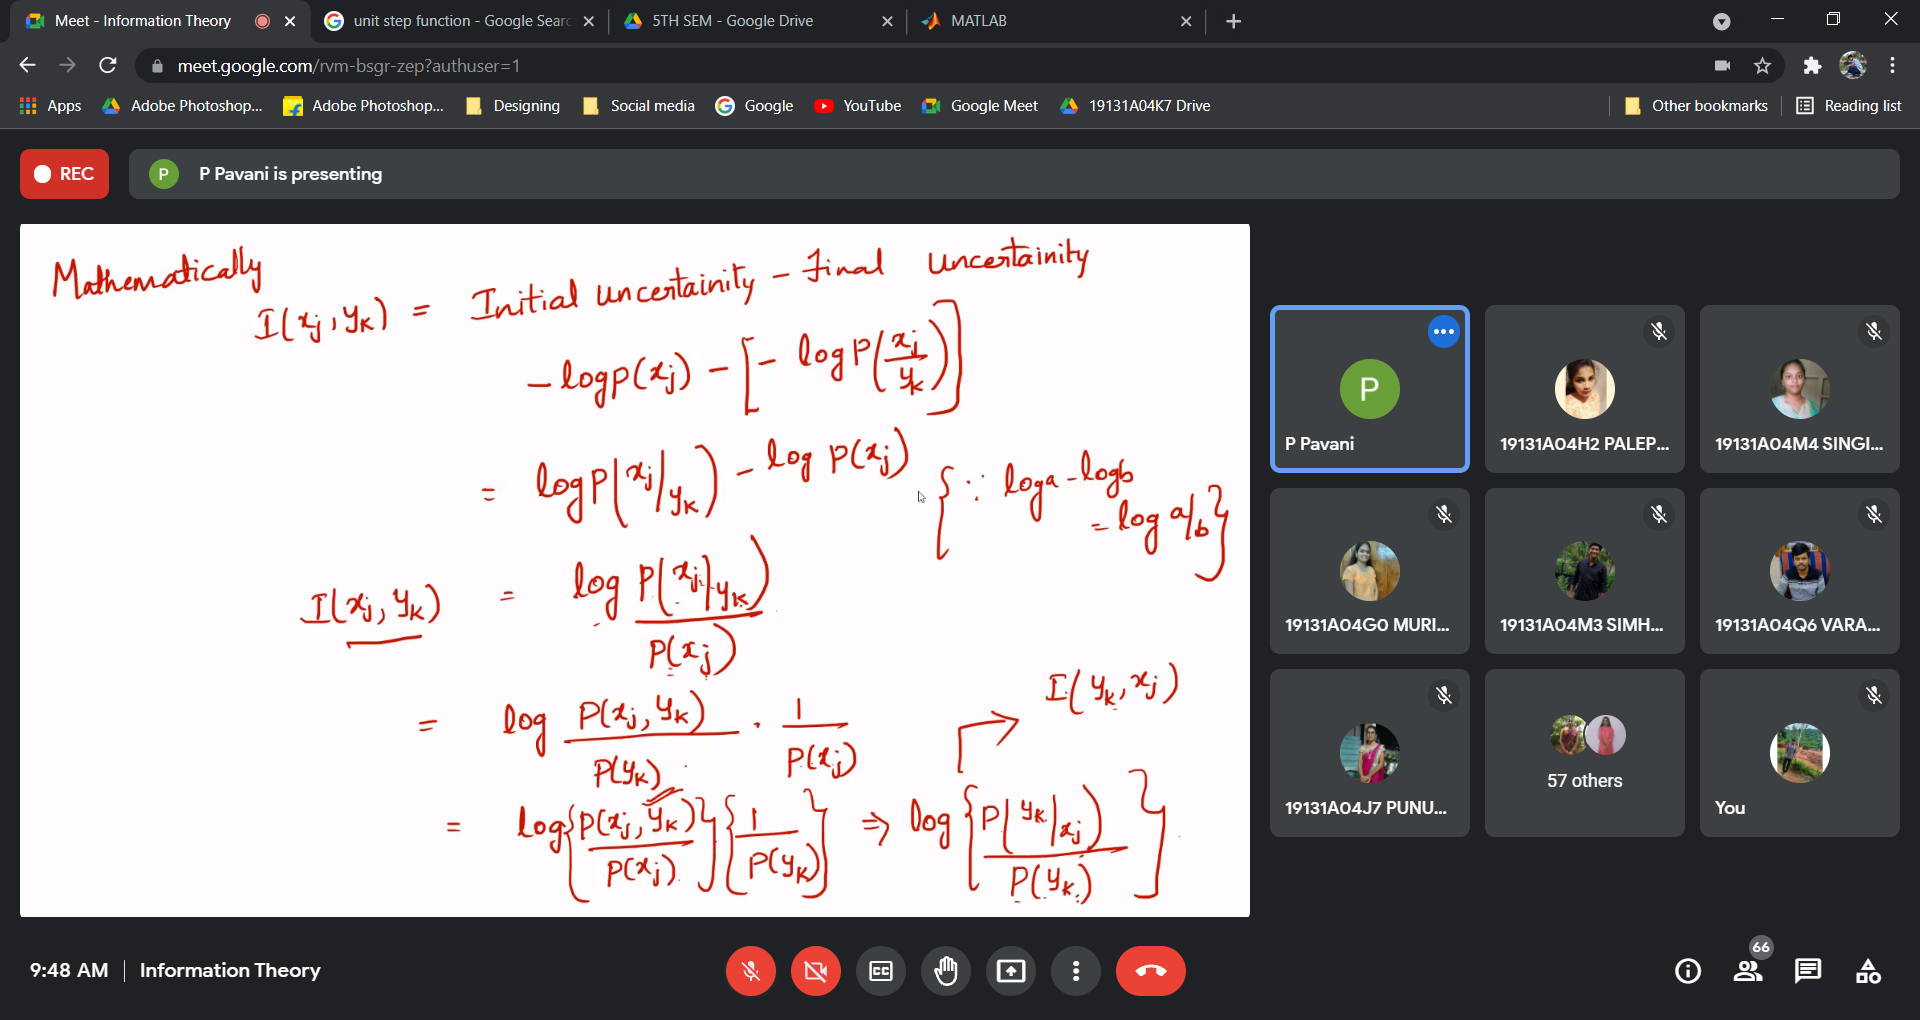 Meet - Information Theory
unit step function - Google Searc
5TH SEM - Google Drive
MATLAB
meet.google.com/rvm-bsgr-zep?authuser=1
Apps
Adobe Photoshop...
Adobe Photoshop...
Designing
Social media
Google
YouTube
Google Meet
19131A04K7 Drive
Other bookmarks
Reading list
REC
P
P Pavani is presenting
Mathematically
I(xj, yk) = Initial uncertainity - Final uncertainity
- log P(xj) - [- log P(xj/yk)]
= log P(xj/yk) - log P(xj)
{∵ log a - log b
= log a/b}
I(xj, yk) = log P(xj|yk)/P(xj)
= log P(xj, yk)/P(yk) · 1/P(xj)
I(yk, xj)
= log{P(xj, yk)/P(xj)}{1/P(yk)} ⇒ log{P(yk/xj)/P(yk)}
P
P Pavani
19131A04H2 PALEP...
19131A04M4 SINGI...
19131A04G0 MURI...
19131A04M3 SIMH...
19131A04Q6 VARA...
19131A04J7 PUNU...
57 others
You
9:48 AM | Information Theory
CC
66